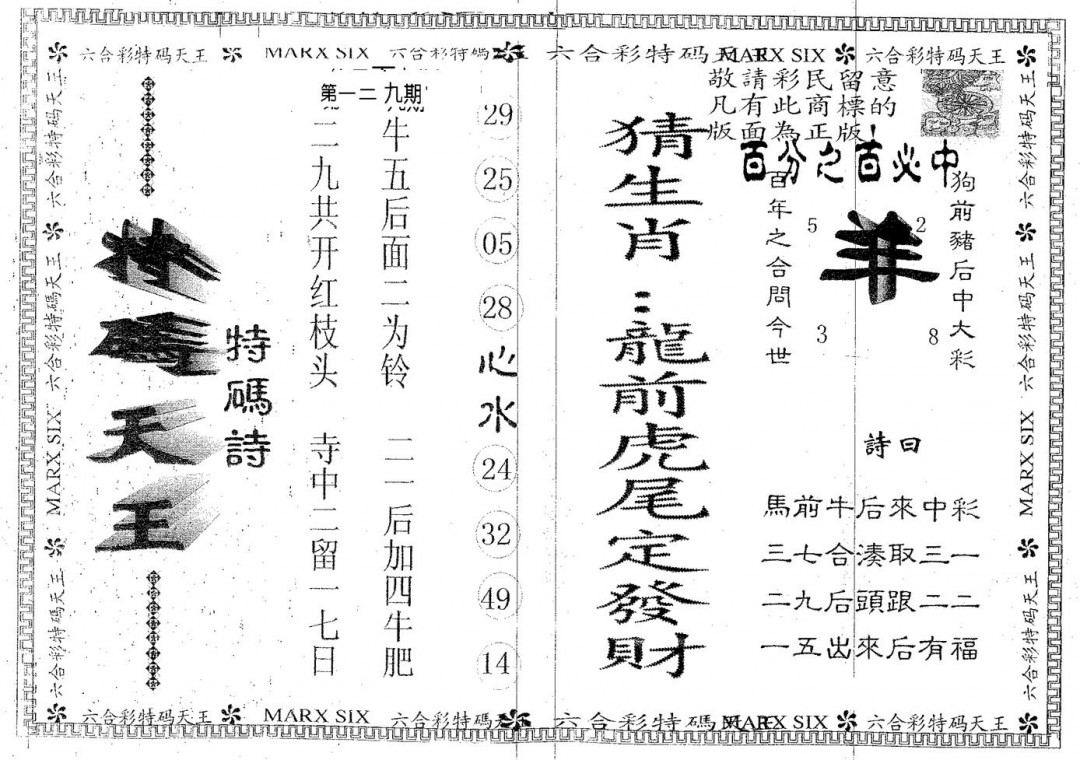 六合彩特码天王 MARX SIX 六合彩特碼天王 六合彩特码天王 MARX SIX 六合彩特码天王
敬請彩民留意
凡有此商標的
版面為正版!
第一二九期
百分之百必中
狗前豬后中大彩
羊
5 2
3 8
百年之合問今世
詩曰
馬前牛后來中彩
三七合湊取三一
二九后頭跟二二
一五出來后有福
猜生肖:龍前虎尾定發財
29
25
05
28
心水
24
32
49
14
牛五后面二为铃 二一后加四牛肥
二九共开红枝头 寺中二留一七日
特碼詩
特碼天王
六合彩特码天王 六合彩特碼天王 MARX SIX 六合彩特碼天王
六合彩特码天王 六合彩特碼天王 MARX SIX 六合彩特碼天王
六合彩特码天王 MARX SIX 六合彩特碼天王 六合彩特碼 MARX SIX 六合彩特码天王